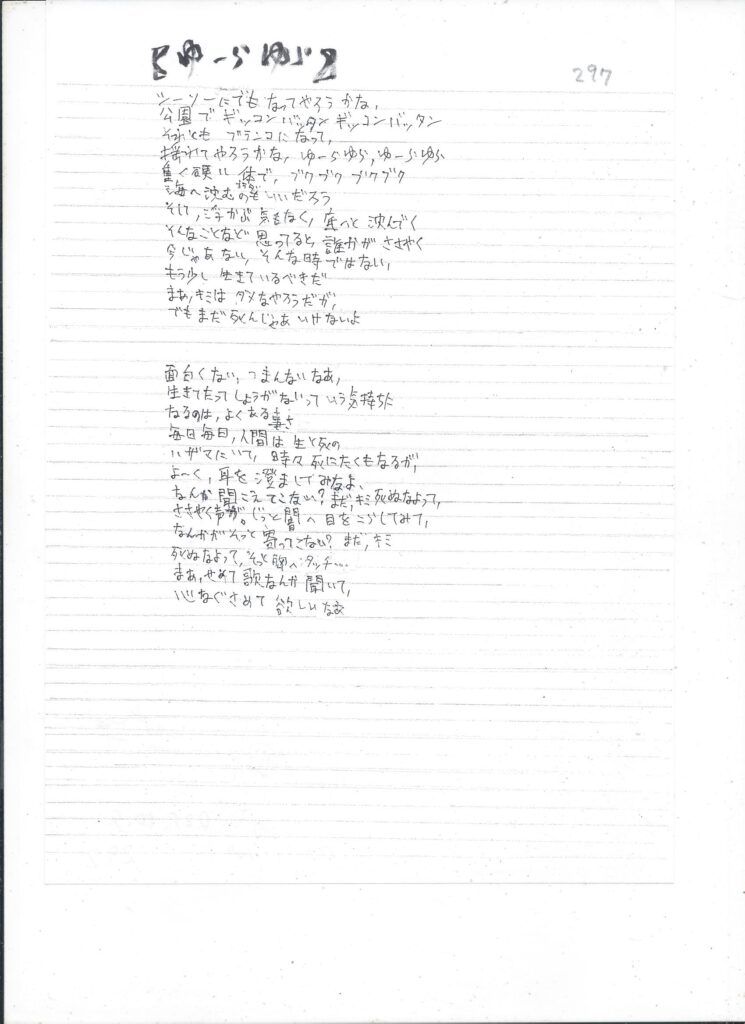 【ゆーらゆら】
297
シーソーにでもなってやろうかな、
公園でギッコンバッタンギッコンバッタン
それとも ブランコになって、
揺れてやろうかな、ゆーらゆら、ゆーらゆら
重く硬い体で、ブクブクブクブク
海へ沈むのもいいだろう
そして、浮かぶ気もなく、底へと沈んでく
そんなことなど思ってると、誰かがささやく
今じゃあない、そんな時ではない、
もう少し生きているべきだ
まあ、キミはダメなやろうだが、
でもまだ死んじゃあいけないよ
面白くない、つまんないなあ、
生きてたってしょうがないっていう気持ちに
なるのは、よくある事さ
毎日毎日、人間は生と死の
ハザマにいて、時々死にたくもなるが、
よ〜く、耳を澄ましてみなよ、
なんか聞こえてこない?まだ、キミ死ぬなよって、
ささやく声が。じっと闇へ目をこらしてみて、
なんかがそっと寄ってこない?まだ、キミ
死ぬなよって、そっと胸へタッチ…
まあ、せめて歌なんか聞いて、
心なぐさめて欲しいなあ